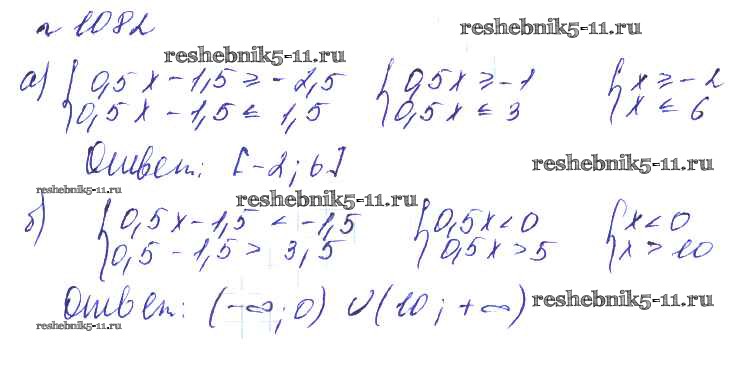 № 1082
reshebnik5-11.ru
reshebnik5-11.ru
а) { 0,5x - 1,5 ≥ - 2,5 { 0,5x ≥ - 1 { x ≥ - 2
0,5x - 1,5 ≤ 1,5 0,5x ≤ 3 x ≤ 6
Ответ: [-2; 6]
reshebnik5-11.ru
reshebnik5-11.ru
reshebnik5-11.ru
б) { 0,5x - 1,5 < - 1,5 { 0,5x < 0 { x < 0
0,5 - 1,5 > 3,5 0,5x > 5 x > 10
Ответ: (-∞; 0) ∪ (10; +∞)
reshebnik5-11.ru
reshebnik5-11.ru